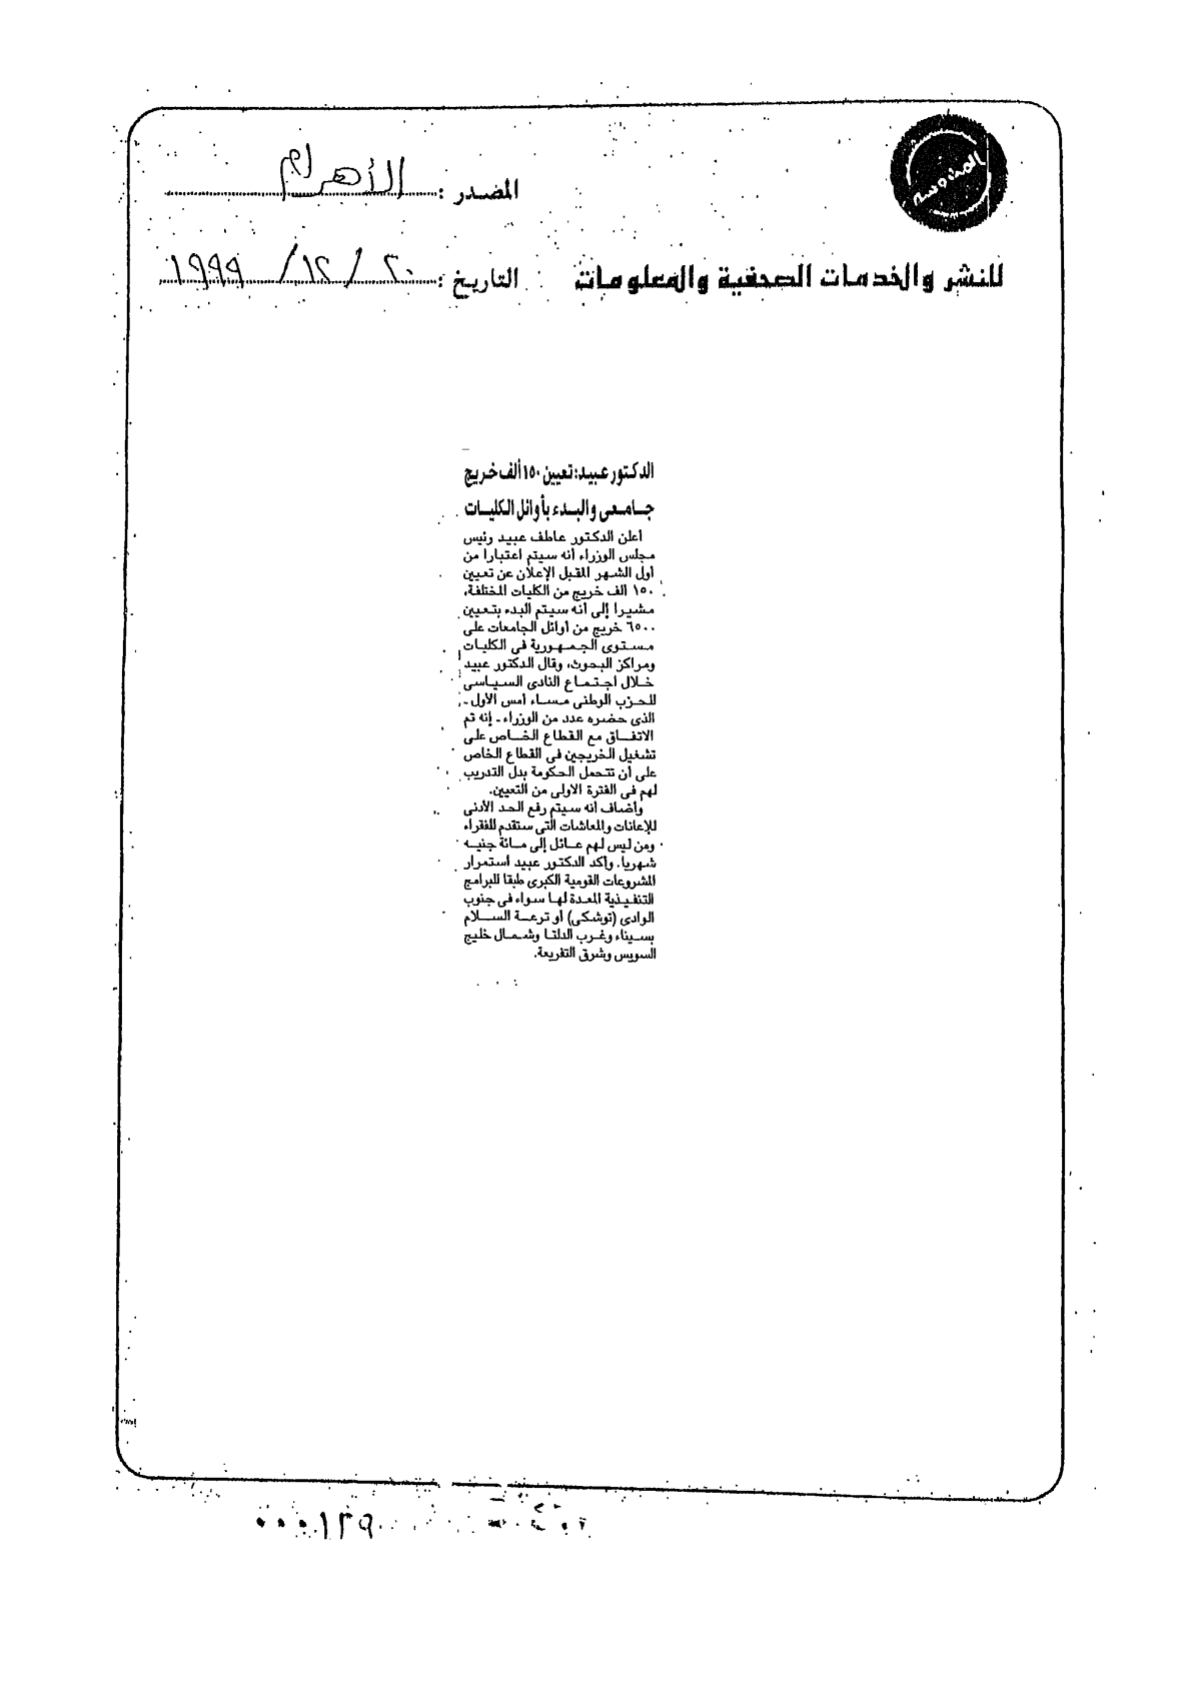 المحروسة
المصدر : الأهرام
للنشر والخدمات الصحفية والمعلومات
التاريخ : ٢٠ / ١٢ / ١٩٩٩
الدكتور عبيد: تعيين ١٥٠ ألف خريج
جامعى والبدء بأوائل الكليات
أعلن الدكتور عاطف عبيد رئيس
مجلس الوزراء أنه سيتم اعتبارا من
أول الشهر المقبل الإعلان عن تعيين
١٥٠ الف خريج من الكليات المختلفة،
مشيرا إلى أنه سيتم البدء بتعيين
٦٥٠٠ خريج من أوائل الجامعات على
مستوى الجمهورية فى الكليات
ومراكز البحوث، وقال الدكتور عبيد
خلال اجتماع النادى السياسى
للحزب الوطنى مساء أمس الأول -
الذى حضره عدد من الوزراء - إنه تم
الاتفاق مع القطاع الخاص على
تشغيل الخريجين فى القطاع الخاص
على أن تتحمل الحكومة بدل التدريب
لهم فى الفترة الأولى من التعيين.
وأضاف أنه سيتم رفع الحد الأدنى
للإعانات والمعاشات التى ستقدم للفقراء
ومن ليس لهم عائل إلى مائة جنيه
شهريا. وأكد الدكتور عبيد استمرار
المشروعات القومية الكبرى طبقا للبرامج
التنفيذية المعدة لها سواء فى جنوب
الوادى (توشكى) أو ترعة السلام
بسيناء وغرب الدلتا وشمال خليج
السويس وشرق التفريعة.